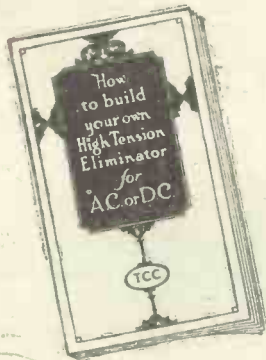 How
to build
your own
High Tension
Eliminator
for
A.C. or D.C.
TCC